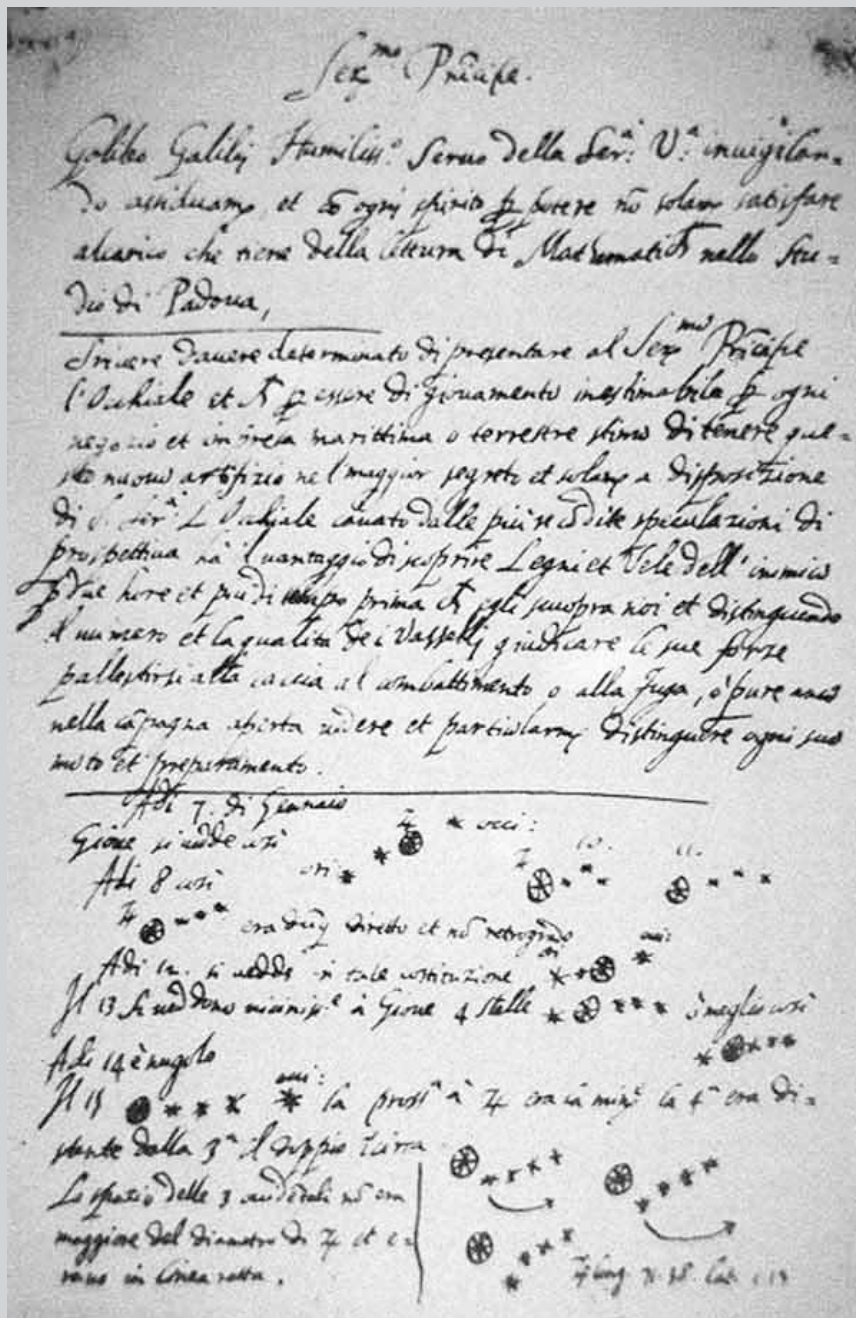 Ser.mo Prĩcipe.
Galileo Galilej Humiliss.o Servo della Ser.a V.a invigilan=
do assiduam.e, et cõ ogni spirito p potere nõ solam.e satisfare
alcarico che tiene della lettura di Mathematich nello Stu=
dio di Padova,
Scrivere davere determinato di presentare al Ser.mo Prĩcipe
l'Occhiale et ch p essere di giovamento inestimabile p ogni
negozio et impresa marittima o terrestre stimo di tenere que=
sto nuovo artifizio nel maggior segreto et solam.e a disposizione
di S. Ser.a L'Occhiale cavato dalle più recõdite speculazioni di
prospettiva ha il vantaggio di scoprire Legni et Vele dell' inimico
p due hore et più di tempo prima ch egli scuopra noi et distinguendo
il numero et la qualita de i Vasselli giudicare le sue forze
pallestirsi alla caccia al combattimento o alla fuga, ò pure anco
nella cãpagna aperta vedere et particularm.e distinguere ogni suo
moto et preparamento.
Adi 7. di Gennaio
Giove si vedde così
♃ occi:
Adi 8 così
ori
♃ 10. 11.
♃ era dũq diretto et nõ retrogrado
Adi 12. si vedde in tale costituzione ori occi:
Il 13 si veddono viciniss.e à Giove 4 stelle ò meglio così
Adi 14 è nugolo
Il 15 occi: la pross.a à ♃ era la min.e la 4a era di=
stante dalla 3a il doppio circa
Lo spazio delle 3 occidẽtali nõ era
maggiore del diametro di ♃ et e=
rano in linea retta.
♃ long. 71. 38. Lat. 1. 13